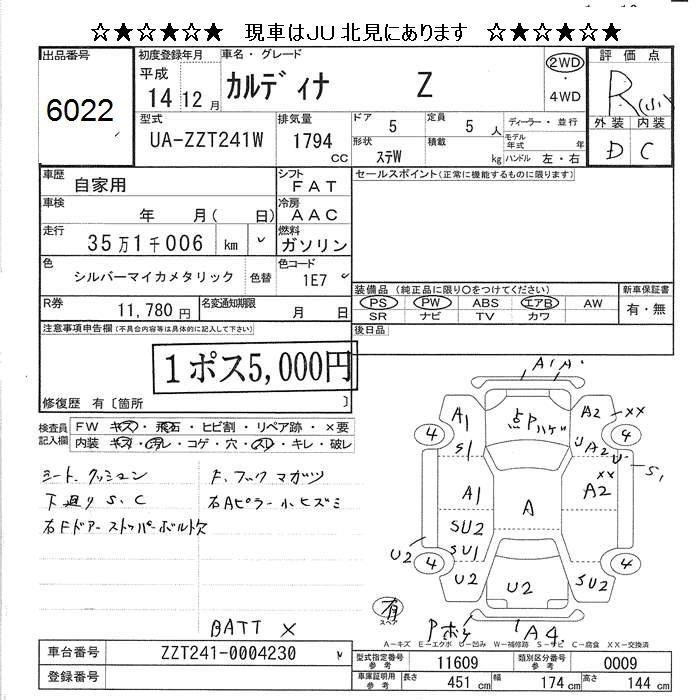 ☆★☆★☆★ 現車はJU北見にあります ☆★☆★☆★
出品番号 初度登録年月 車名・グレード 評価点
6022 平成 14 12 月 カルディナ Z 2WD ・ 4WD R(小)
型式 排気量 ドア 5 定員 5 人 ディーラー・並行 外装 内装
UA-ZZT241W 1794 CC 形状 ステW 積載 kg モデル年式 年 ハンドル 左・右 D C
車歴 自家用 シフト FAT セールスポイント(正常に機能するものに限ります)
車検 年 月( 日) 冷房 AAC
走行 35万1千006 km 燃料 ガソリン
色 シルバーマイカメタリック 色替 色コード 1E7
装備品 (純正品に限り○をつけてください) 新車保証書
PS PW ABS エアB AW 有・無
SR ナビ TV カワ
R券 11,780 円 名変通知期限 月 日
後日品
注意事項申告欄(不具合内容等は具体的に記入して下さい)
1ポス5,000円
修復歴 有〔箇所 〕
検査員記入欄 FW キズ・飛石・ヒビ割・リペア跡・×要
内装 キズ・汚レ・コゲ・穴・スレ・キレ・破レ
シート、クッション F、フックマガリ
下廻りS、C 右Aピラー小ヒズミ
右Fドアーストッパーボルト欠
BATT ×
A1 A1
A1 点Pハゲ A2 XX
4 4
S1 U A2 U S1
A1 A XX A2
SU2
U2 SU1
4 4
U2 U2 SU2
有 スペア
Pボケ A4
A-キズ E-エクボ U-凹ミ W-補修跡 S-サビ C-腐食 XX-交換済
車台番号 ZZT241-0004230 型式指定番号 参考 11609 類別区分番号 参考 0009
登録番号 車庫証明用 参考 長さ 451 cm 幅 174 cm 高さ 144 cm